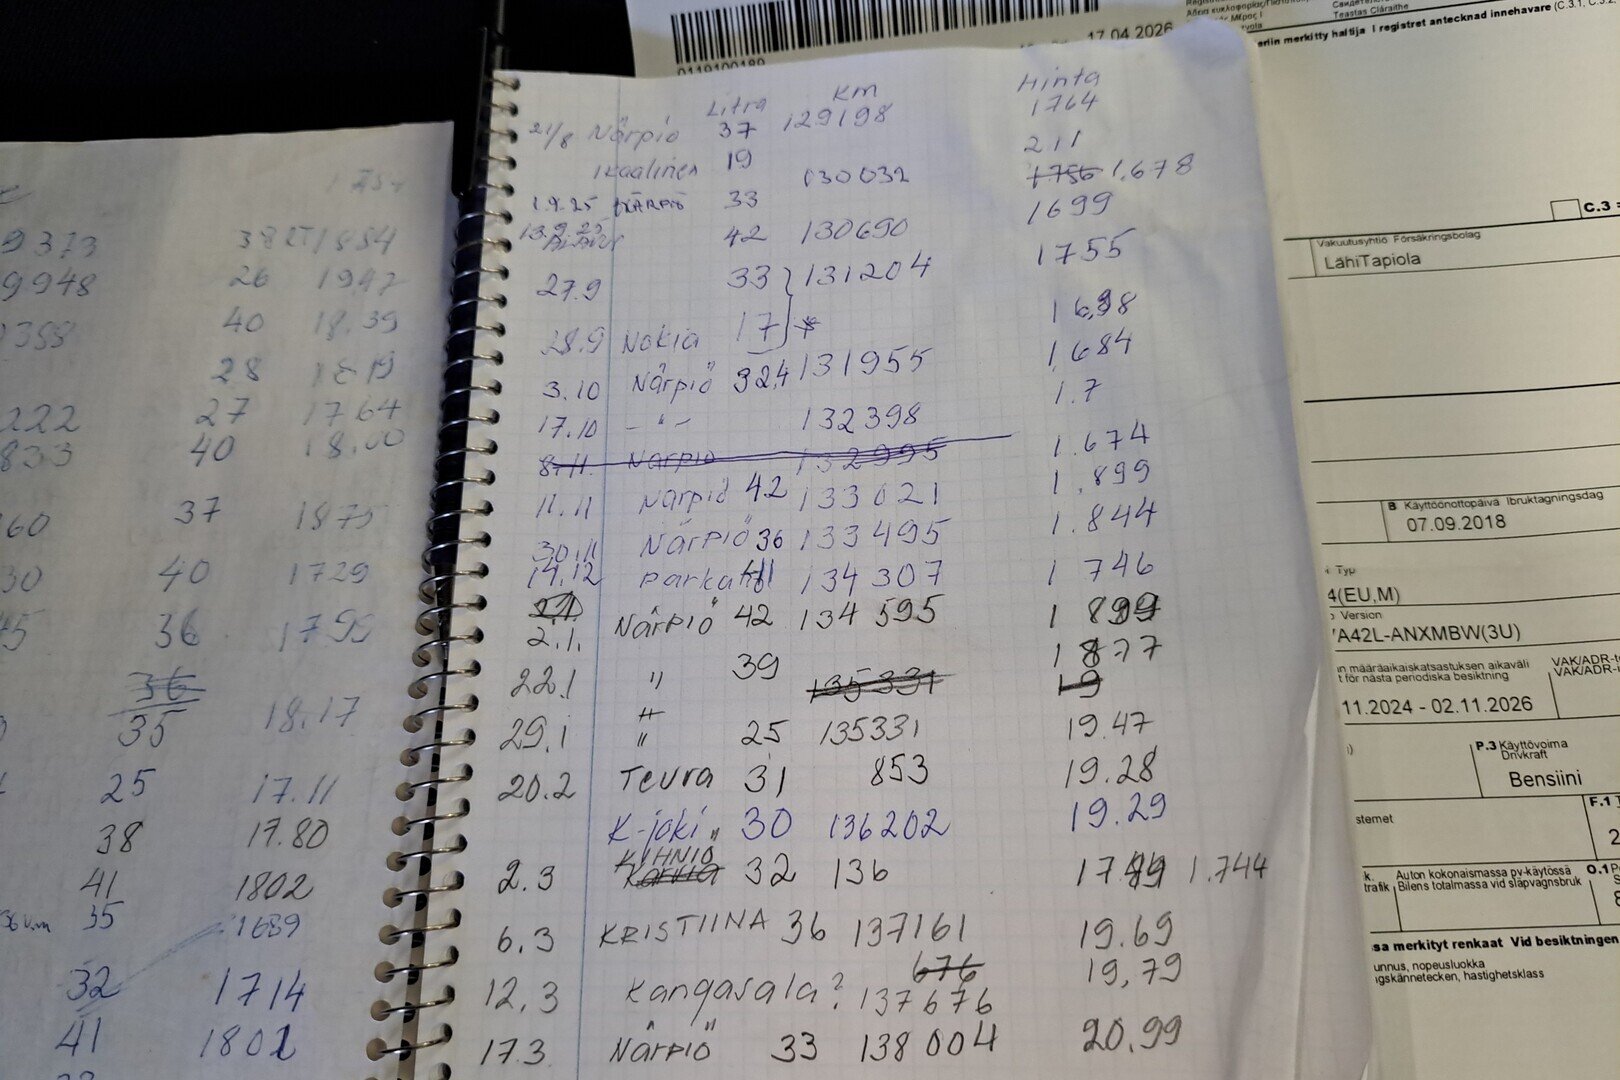 9373 38 1884
9948 26 1947
358 40 18.39
28
222 27 1764
833 40 18.00
60 37 1875
30 40 1729
45 36 1799
36
35 18.17
25 17.11
38 17.80
41 1802
35 1689
32 1714
41 1802
Litra Km Hinta
21/8 Närpiö 37 129198 1764
Ikaalinen 19 211
1.9.25 NÄRPIÖ 33 130032 1756 1.678
13.9.25 42 130690 1699
27.9 33 131204 1755
28.9 Nokia 17 1698
3.10 Närpiö 32,4 131955 1.684
17.10 -"- 132398 1.7
8.11. Närpiö 132995
11.11 Närpiö 42 133021 1.674
30.11 Närpiö 36 133495 1.899
14.12 Parkano 41 134307 1.844
2.1. Närpiö 42 134595 1 746
1 899
22.1 " 39 135331 1877
19
29.1 " 25 135331 19.47
20.2 Teuva 31 853 19.28
K-joki 30 136202 19.29
KIHNIÖ
2.3 Karvia 32 136 1749 1.744
6.3 KRISTIINA 36 137161 19.69
676
12.3 Kangasala? 137676 19,79
17.3 Närpiö 33 138004 20.99
0119100189
17.04.2026
Teastas Cláraithe
eriin merkitty haltija I registret antecknad innehavare (C.3.1, C.3.2,
C.3
Vakuutusyhtiö Försäkringsbolag
LähiTapiola
B Käyttöönottopäivä Ibruktagningsdag
07.09.2018
Typ
4(EU,M)
Version
A42L-ANXMBW(3U)
n määräaikaiskatsastuksen aikaväli
t för nästa periodiska besiktning
VAK/ADR-
VAK/ADR-
11.2024 - 02.11.2026
P.3 Käyttövoima
Drivkraft
Bensiini
F.1
Auton kokonaismassa pv-käytössä
Bilens totalmassa vid släpvagnsbruk
O.1
sa merkityt renkaat Vid besiktningen
unnus, nopeusluokka
gskännetecken, hastighetsklass